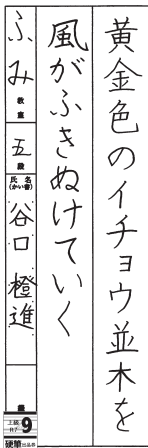 黄金色のイチョウ並木を
風がふきぬけていく
ふみ 教室
五 段
氏名(かい書) 谷口 橙進
上級 R7 9
硬筆